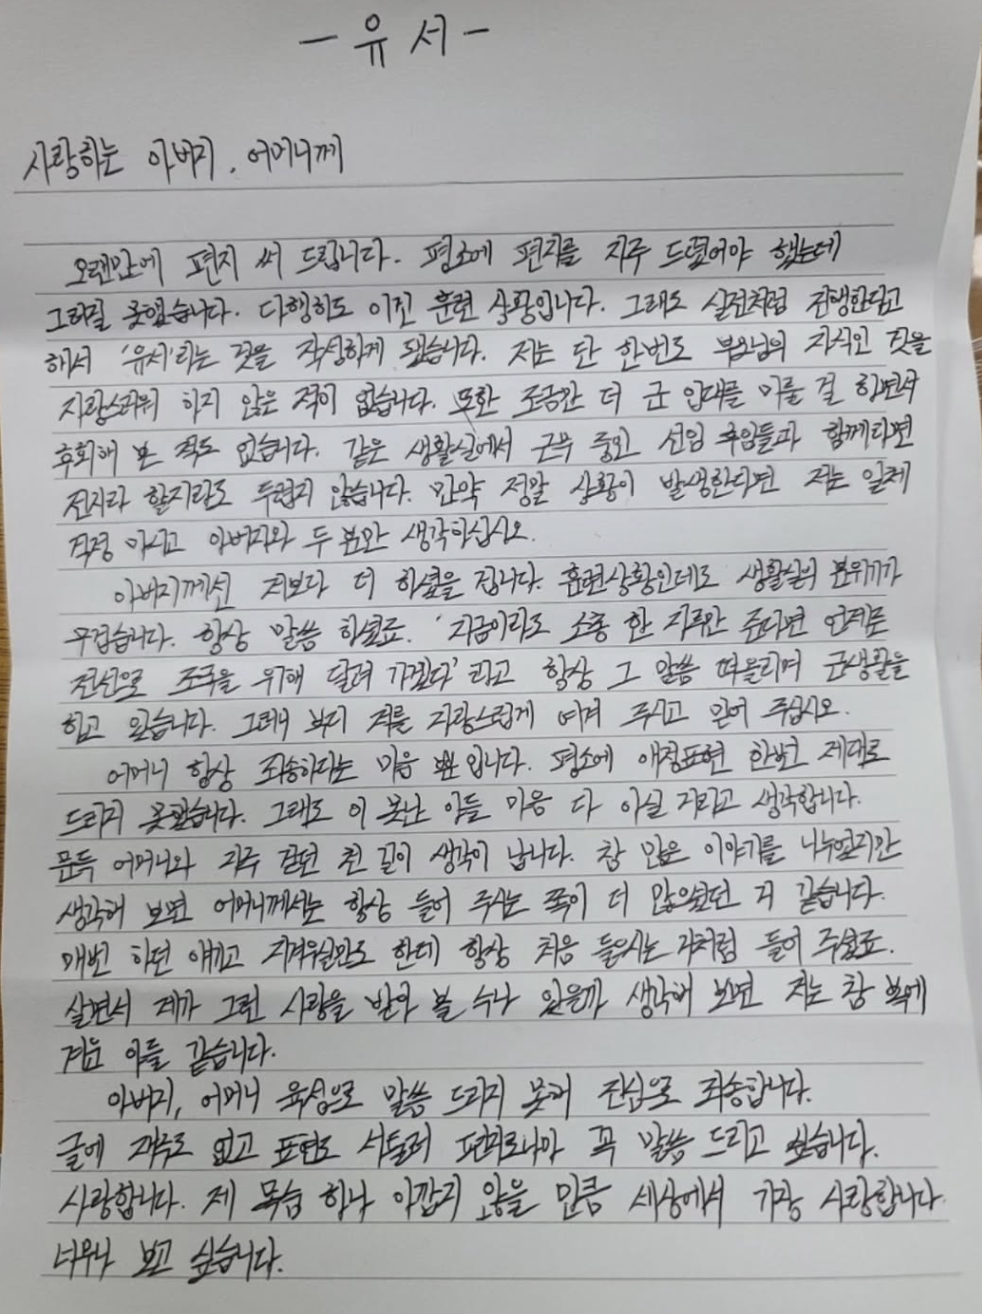 - 유서 -
사랑하는 아버지, 어머니께
오랜만에 편지 써 드립니다. 평소에 편지를 자주 드렸어야 했는데
그러질 못했습니다. 다행히도 이건 훈련 상황입니다. 그래도 실전처럼 진행한다고
해서 '유서'라는 것을 작성하게 됐습니다. 저는 단 한번도 부모님의 자식인 것을
자랑스러워 하지 않은 적이 없습니다. 또한 조금만 더 군 입대를 미룰 걸 하면서
후회해 본 적도 없습니다. 같은 생활실에서 근무 중인 선임 후임들과 함께라면
전시라 할지라도 두렵지 않습니다. 만약 정말 상황이 발생한다면 저는 일체
걱정 마시고 아버지와 두 분만 생각하십시오.
아버지께선 저보다 더 하셨을 겁니다. 훈련상황인데도 생활실의 분위기가
무겁습니다. 항상 말씀 하셨죠. '지금이라도 소총 한 자루만 준다면 언제든
전선으로 조국을 위해 달려 가겠다' 라고 항상 그 말씀 떠올리며 군생활을
하고 있습니다. 그러니 부디 저를 자랑스럽게 여겨 주시고 믿어 주십시오.
어머니 항상 죄송하다는 마음 뿐입니다. 평소에 애정표현 한번 제대로
드리지 못했습니다. 그래도 이 못난 아들 마음 다 아실 거라고 생각합니다.
문득 어머니와 자주 걷던 천 길이 생각이 납니다. 참 많은 이야기를 나누었지만
생각해 보면 어머니께서는 항상 들어 주시는 쪽이 더 많으셨던 거 같습니다.
매번 하던 얘기고 지겨우실만도 한데 항상 처음 들으시는 거처럼 들어 주셨죠.
살면서 제가 그런 사랑을 받아 볼 수나 있을까 생각해 보면 저는 참 복에
겨운 아들 같습니다.
아버지, 어머니 육성으로 말씀 드리지 못해 진심으로 죄송합니다.
글에 재주도 없고 표현도 서툴러 편지로나마 꼭 말씀 드리고 싶습니다.
사랑합니다. 제 목숨 하나 아깝지 않을 만큼 세상에서 가장 사랑합니다.
너무나 보고 싶습니다.